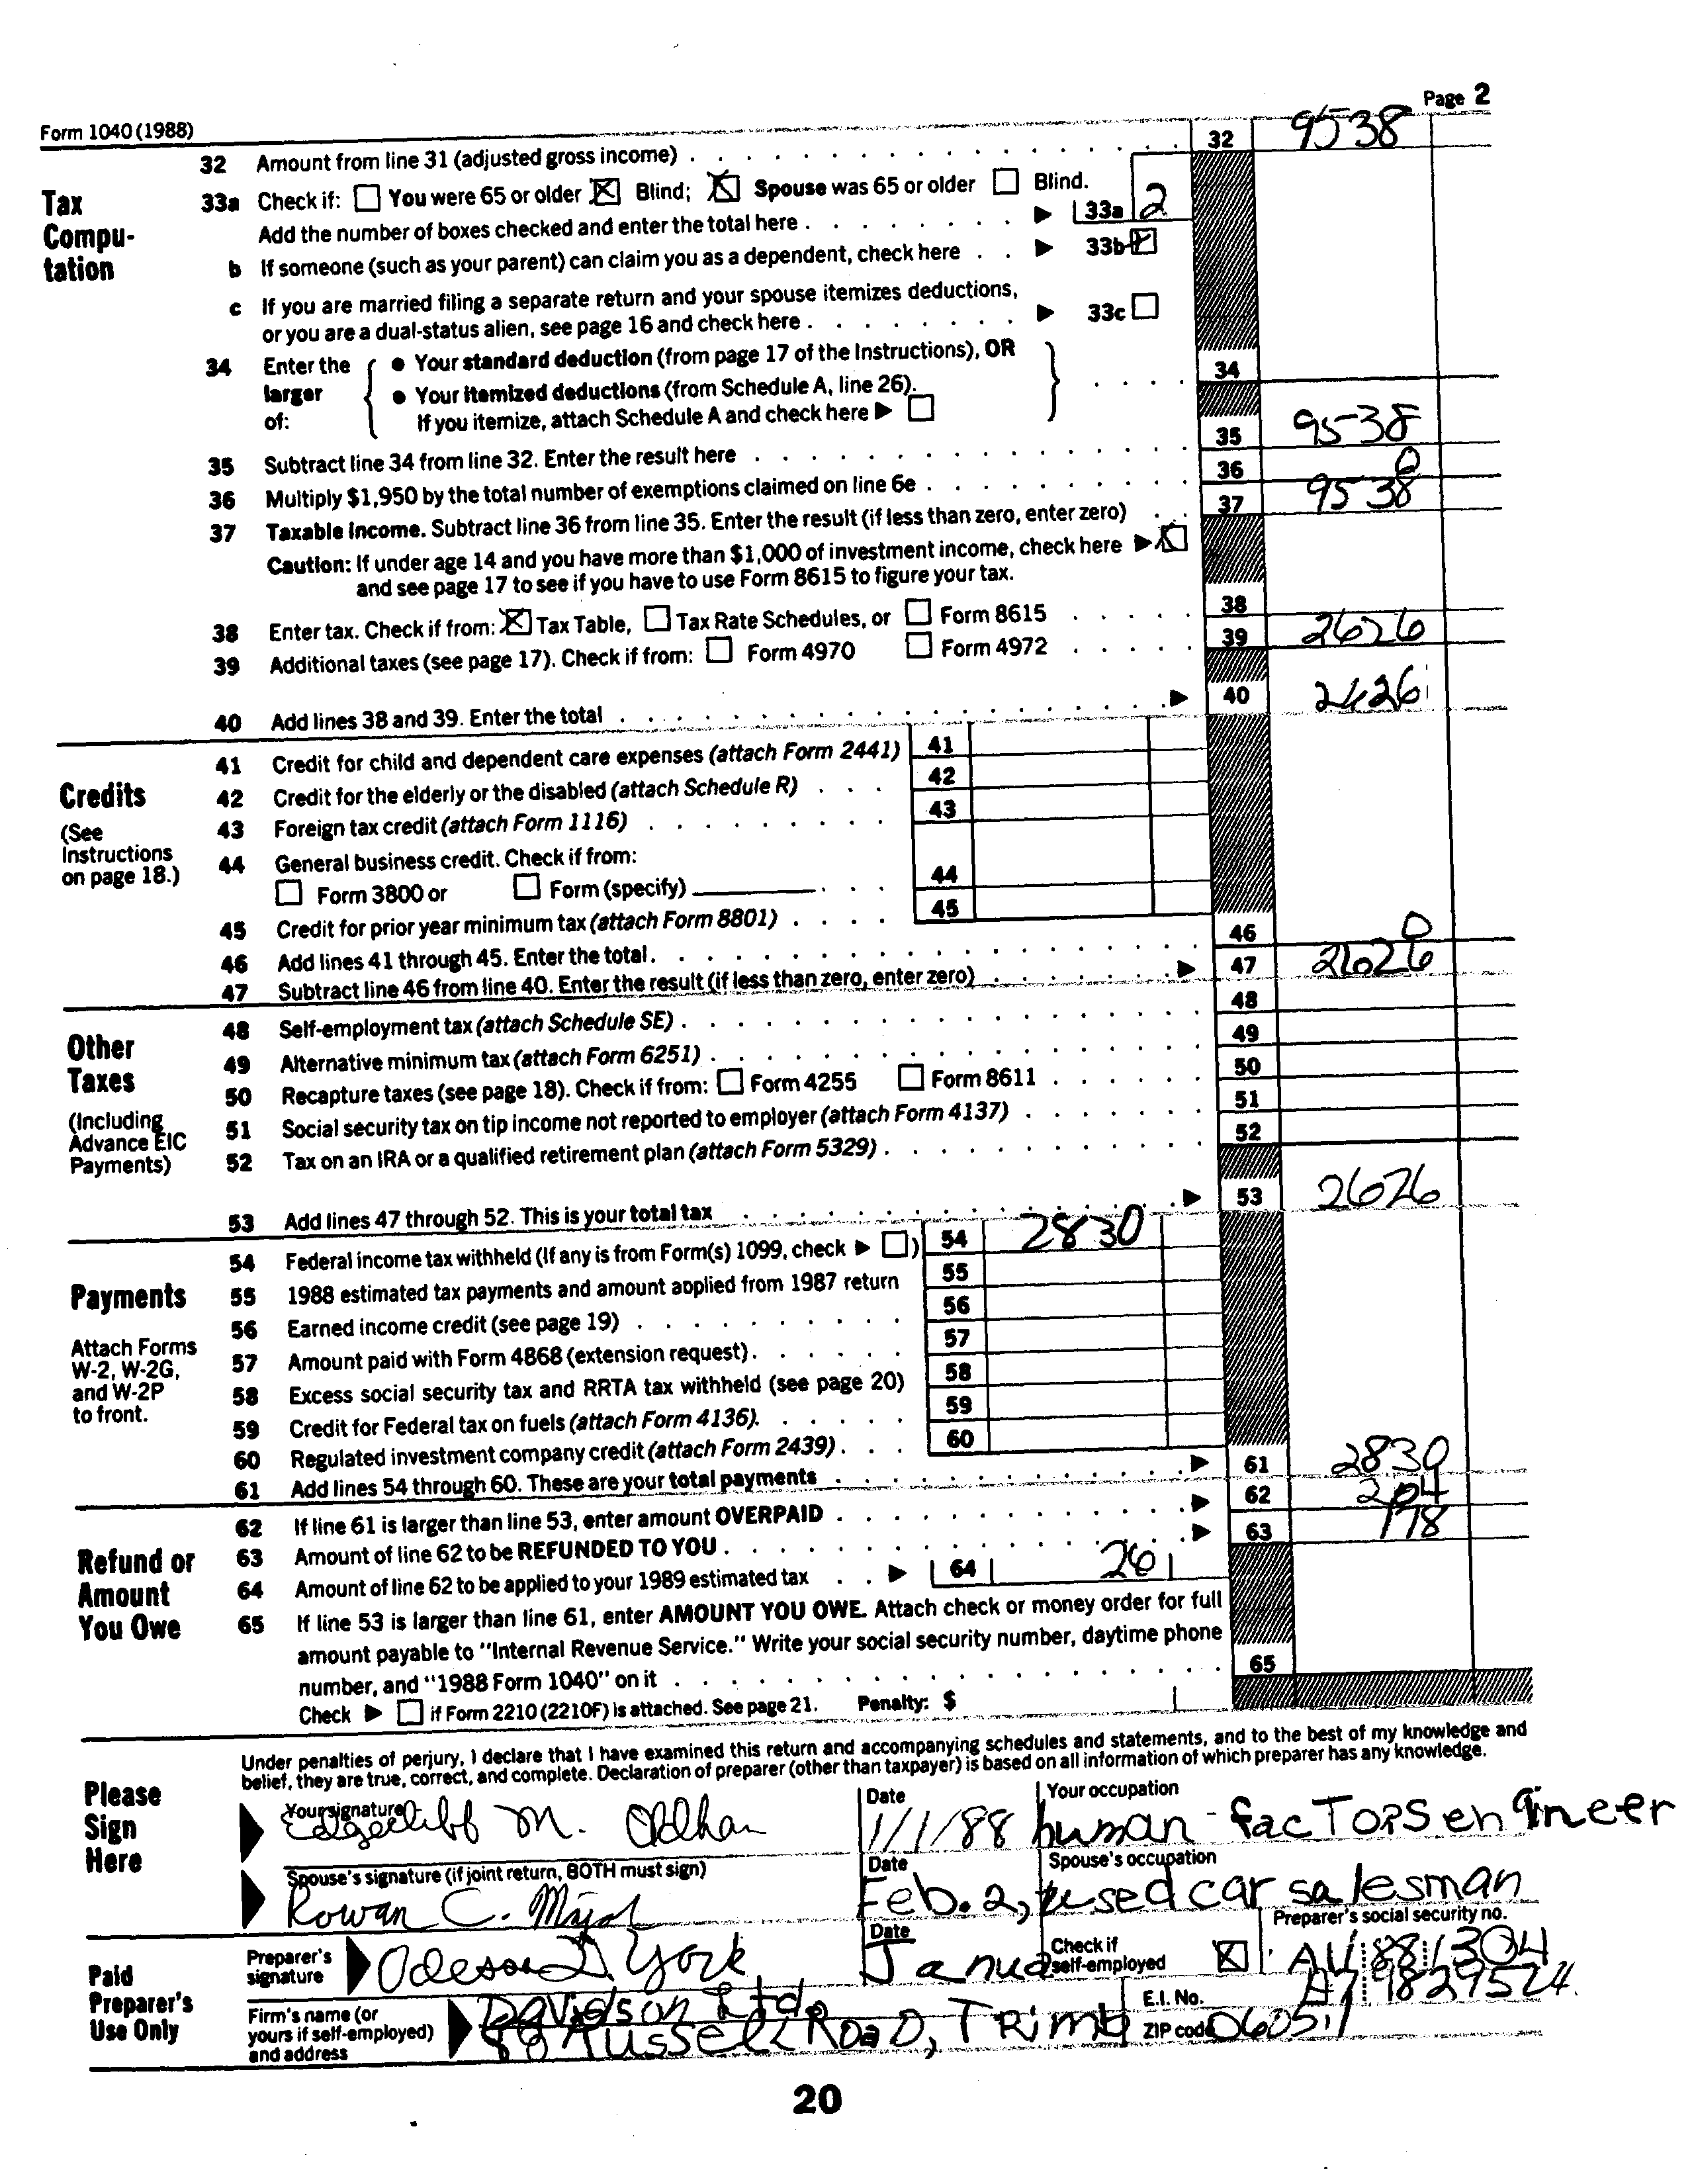 Page 2
Form 1040 (1988)
32 Amount from line 31 (adjusted gross income) 32 9538
Tax Compu-tation
33a Check if: You were 65 or older Blind; Spouse was 65 or older Blind.
Add the number of boxes checked and enter the total here 33a 2
b If someone (such as your parent) can claim you as a dependent, check here 33b
c If you are married filing a separate return and your spouse itemizes deductions,
or you are a dual-status alien, see page 16 and check here 33c
34 Enter the larger of: • Your standard deduction (from page 17 of the Instructions), OR
• Your itemized deductions (from Schedule A, line 26). 34
If you itemize, attach Schedule A and check here
35 Subtract line 34 from line 32. Enter the result here 35 9538
36 Multiply $1,950 by the total number of exemptions claimed on line 6e 36 0
37 Taxable income. Subtract line 36 from line 35. Enter the result (if less than zero, enter zero) 37 9538
Caution: If under age 14 and you have more than $1,000 of investment income, check here
and see page 17 to see if you have to use Form 8615 to figure your tax.
38 Enter tax. Check if from: Tax Table, Tax Rate Schedules, or Form 8615 38
39 Additional taxes (see page 17). Check if from: Form 4970 Form 4972 39 2626
40 Add lines 38 and 39. Enter the total 40 2626
Credits
(See Instructions on page 18.)
41 Credit for child and dependent care expenses (attach Form 2441) 41
42 Credit for the elderly or the disabled (attach Schedule R) 42
43 Foreign tax credit (attach Form 1116) 43
44 General business credit. Check if from:
Form 3800 or Form (specify) 44
45 Credit for prior year minimum tax (attach Form 8801) 45
46 Add lines 41 through 45. Enter the total 46 0
47 Subtract line 46 from line 40. Enter the result (if less than zero, enter zero) 47 2626
Other Taxes
(Including Advance EIC Payments)
48 Self-employment tax (attach Schedule SE) 48
49 Alternative minimum tax (attach Form 6251) 49
50 Recapture taxes (see page 18). Check if from: Form 4255 Form 8611 50
51 Social security tax on tip income not reported to employer (attach Form 4137) 51
52 Tax on an IRA or a qualified retirement plan (attach Form 5329) 52
53 Add lines 47 through 52. This is your total tax 53 2626
Payments
Attach Forms W-2, W-2G, and W-2P to front.
54 Federal income tax withheld (If any is from Form(s) 1099, check ) 54 2830
55 1988 estimated tax payments and amount applied from 1987 return 55
56 Earned income credit (see page 19) 56
57 Amount paid with Form 4868 (extension request) 57
58 Excess social security tax and RRTA tax withheld (see page 20) 58
59 Credit for Federal tax on fuels (attach Form 4136). 59
60 Regulated investment company credit (attach Form 2439) 60
61 Add lines 54 through 60. These are your total payments 61 2830
Refund or Amount You Owe
62 If line 61 is larger than line 53, enter amount OVERPAID 62 204
63 Amount of line 62 to be REFUNDED TO YOU 63 178
64 Amount of line 62 to be applied to your 1989 estimated tax 64 26
65 If line 53 is larger than line 61, enter AMOUNT YOU OWE. Attach check or money order for full
amount payable to "Internal Revenue Service." Write your social security number, daytime phone
number, and "1988 Form 1040" on it 65
Check if Form 2210 (2210F) is attached. See page 21. Penalty: $
Please Sign Here
Under penalties of perjury, I declare that I have examined this return and accompanying schedules and statements, and to the best of my knowledge and
belief, they are true, correct, and complete. Declaration of preparer (other than taxpayer) is based on all information of which preparer has any knowledge.
Your signature Date Your occupation
Edgecliff M. Oldham 1/1/88 human-facTORS engineer
Spouse's signature (if joint return, BOTH must sign) Date Spouse's occupation
Rowan C. Major Feb. 2, used car salesman
Paid Preparer's Use Only
Preparer's signature Date Check if self-employed Preparer's social security no.
Odessa D. York Janua
Firm's name (or yours if self-employed) and address E.I. No.
Davidson Ltd.
Russell Road, Trimb ZIP code 06051
20